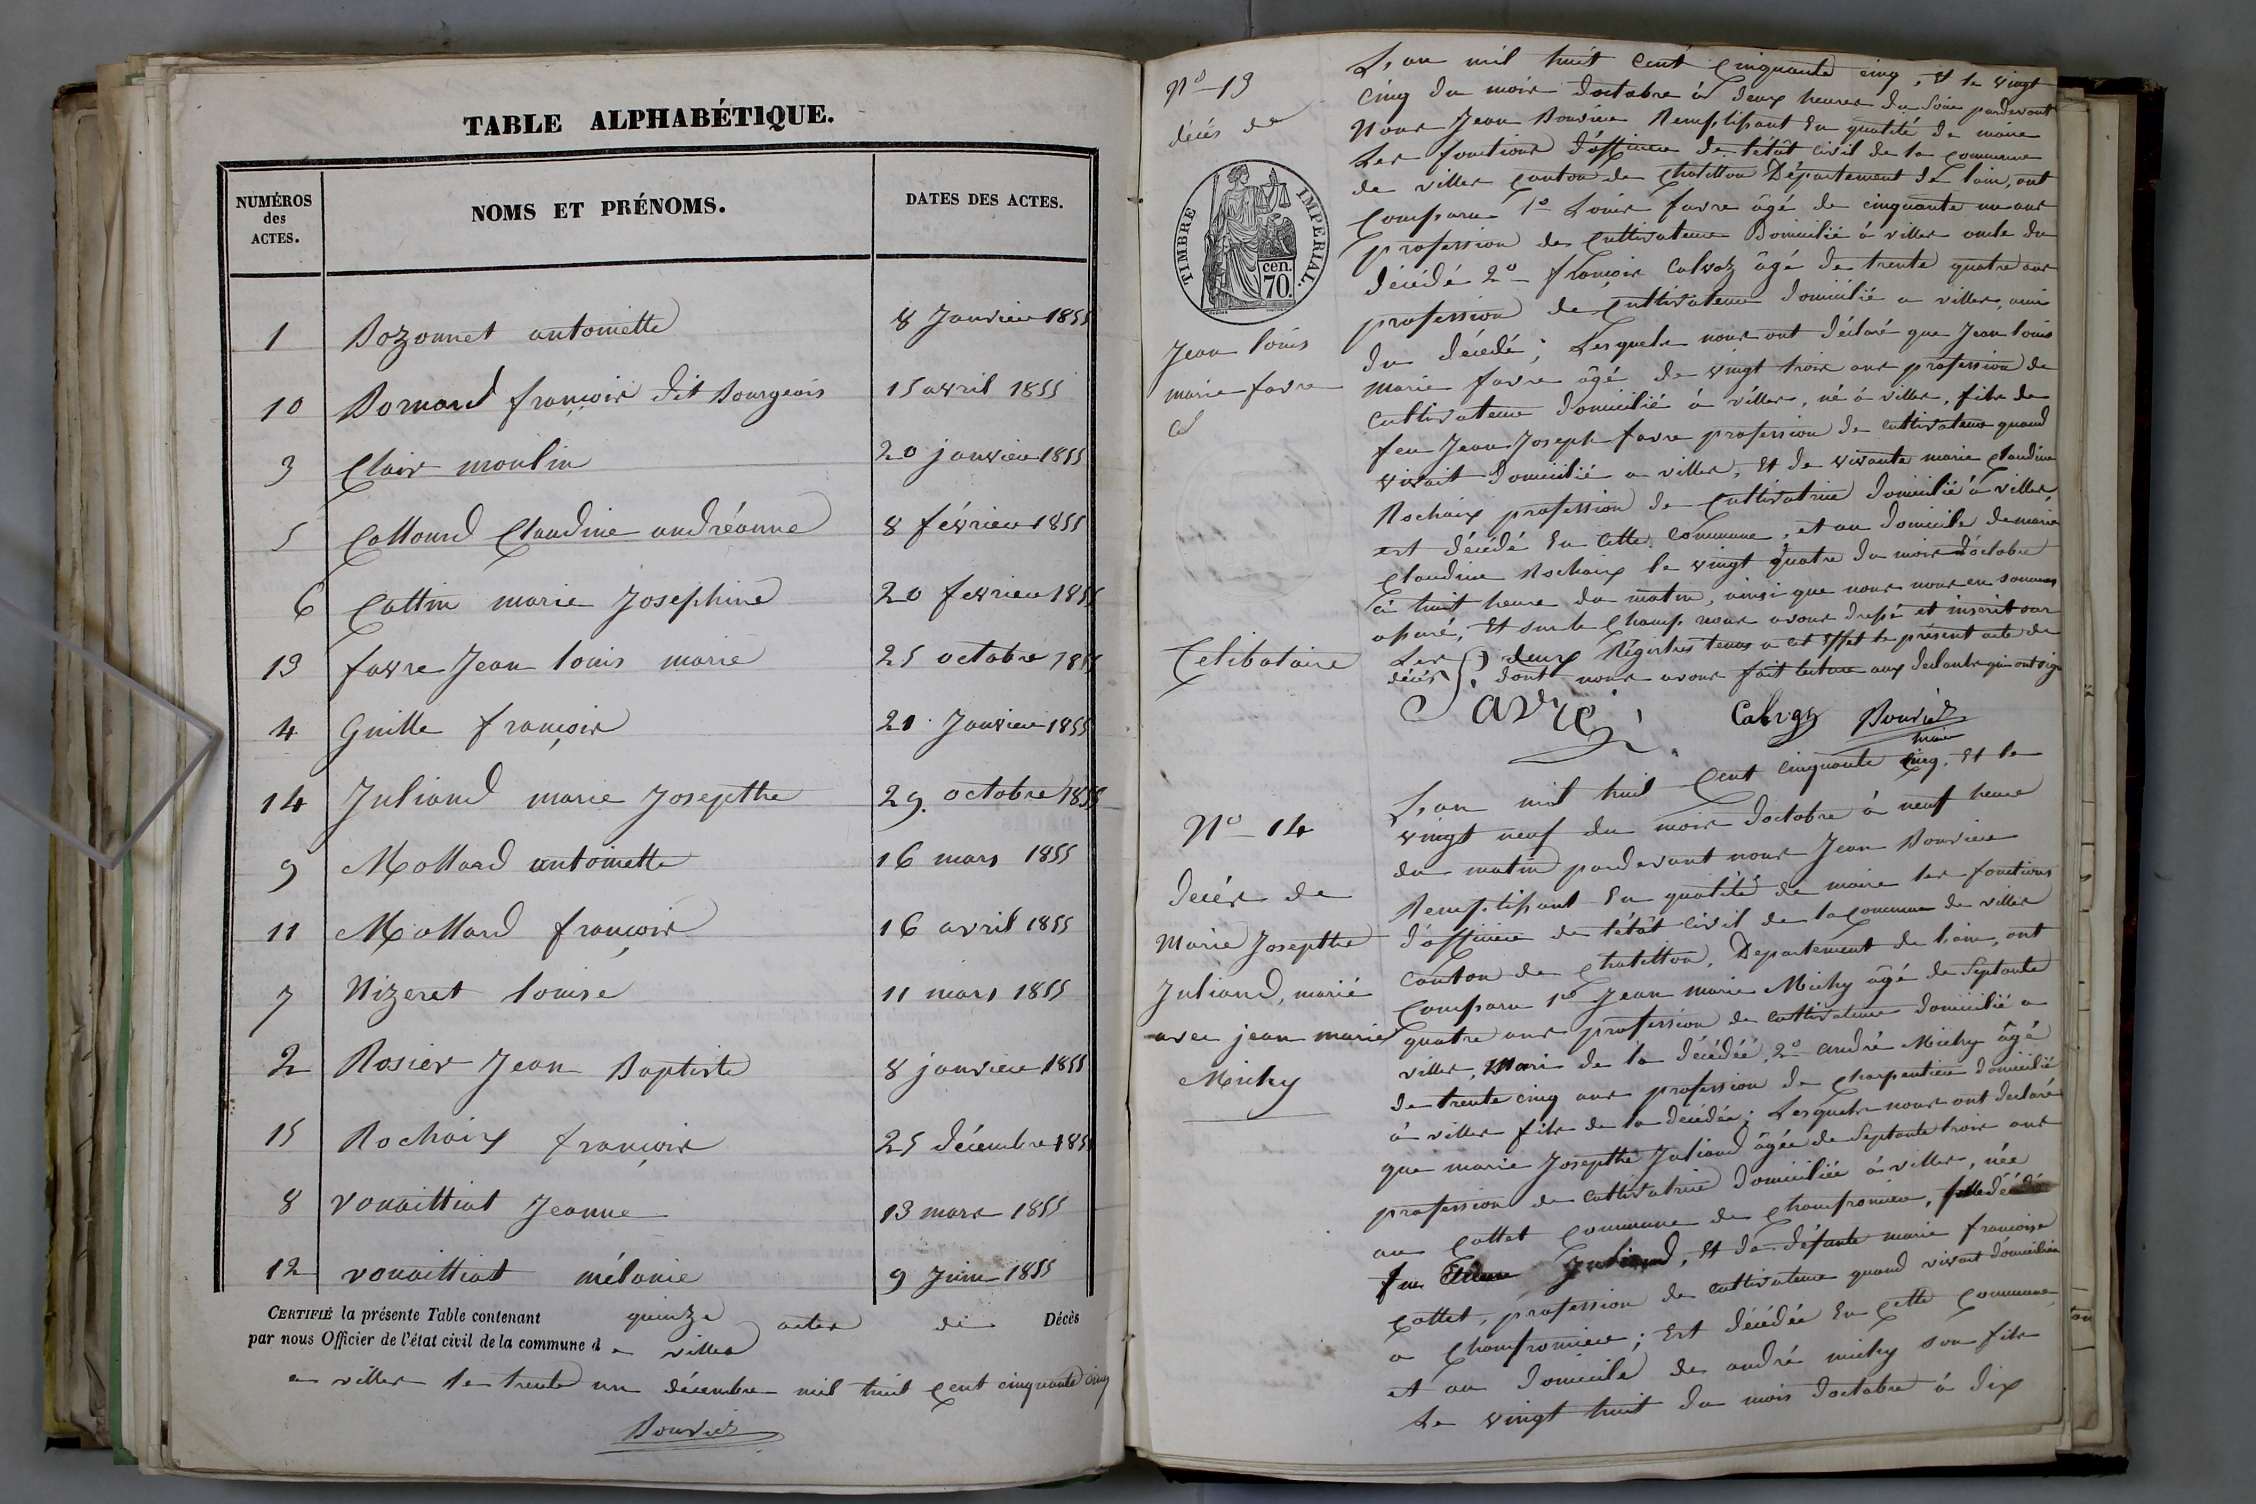 TABLE ALPHABÉTIQUE.
NUMÉROS des ACTES. NOMS ET PRÉNOMS. DATES DES ACTES.
1 Bozonnet antoinette 8 Janvier 1855
10 Bornard françois dit Bourgeois 15 avril 1855
3 Clair moulin 20 janvier 1855
5 Collomb Claudine andréanne 8 février 1855
6 Cottin marie Joséphine 20 fevrier 1855
13 favre Jean louis marie 25 octobre 1855
4 Guille françois 21 Janvier 1855
14 Juliand marie Josepthe 29. octobre 1855
9 Mollard antoinette 16 mars 1855
11 Mollard françois 16 avril 1855
7 Nizeret louise 11 mars 1855
2 Rosier Jean Baptiste 8 janvier 1855
15 Rochaix françois 25 décembre 1855
8 vouaittiat Jeanne 13 mars 1855
12 vouaittiat mélanie 9 Juin 1855
CERTIFIÉ la présente Table contenant quinze actes de Décès
par nous Officier de l'état civil de la commune de villes
a villes le trente un décembre mil huit cent cinquante cinq
Bouvier
N° 13
décés de
TIMBRE IMPERIAL.
cen. 70.
Jean louis
marie favre
Celibataire
L'an mil huit cent cinquante cinq, et le vingt
cinq du mois doctobre à deux heures du soir pardevant
Nous Jean Bouvier Remplissant En qualité de maire
Les fonctions d'officier de l'état civil de la commune
de villes canton de chatillon Département de l'ain, ont
comparu 1° Louis favre âgé de cinquante un ans
profession de cultivateur Domicilié à villes oncle du
décédé 2° françois Calvoz âgé de trente quatre ans
profession de cultivateur domicilié a villes, ami
du décédé; Lesquels nous ont déclaré que Jean louis
marie favre âgé de vingt trois ans profession de
cultivateur domicilié à villes, né à villes, fils de
feu Jean Joseph favre profession de cultivateur quand
vivait domicilié a villes, Et de vivante marie claudine
Rochaix profession de cultivatrice domicilié à villes
est décédé En cette commune, et au domicile de marie
claudine Rochaix le vingt quatre du mois d'octobre
à huit heure du matin, ainsi que nous nous en sommes
assuré, Et sur le champ nous avons dressé et inscrit sur
Les deux Régistres tenus a cet Effet le présent acte de
décès dont nous avons fait lecture aux declarants qui ont signé
Favre Calvoz Bouvier
maire
N° 14
décès de
Marie Josepthe
Juliand, marié
avec jean marie
Michy
L'an mil huit cent cinquante cinq. Et le
vingt neuf du mois doctobre à neuf heure
du matin pardevant nous Jean Bouvier
Remplissant En qualité de maire les fonctions
d'officier de l'état civil de la commune de villes
canton de chatillon, Departement de l'ain, ont
comparu 1° Jean marie Michy âgé de Septante
quatre ans profession de cultivateur domicilié a
villes, Mari de la décédée, 2° andré Michy âgé
de trente cinq ans profession de charpentier domicilié
à villes fils de la decédée; Lesquels nous ont declaré
que marie Josepthe Juliand âgée de Septante trois ans
profession de cultivatrice domiciliée à villes, née
au Cottet commune de champfromier, fille de
feu Juliand, Et de défunte marie françoise
Cottet, profession de cultivateur quand vivait domicilié
a champfromier; Est décédée En cette commune
et au domicile de andré michy son fils
Le vingt huit du mois doctobre à dix